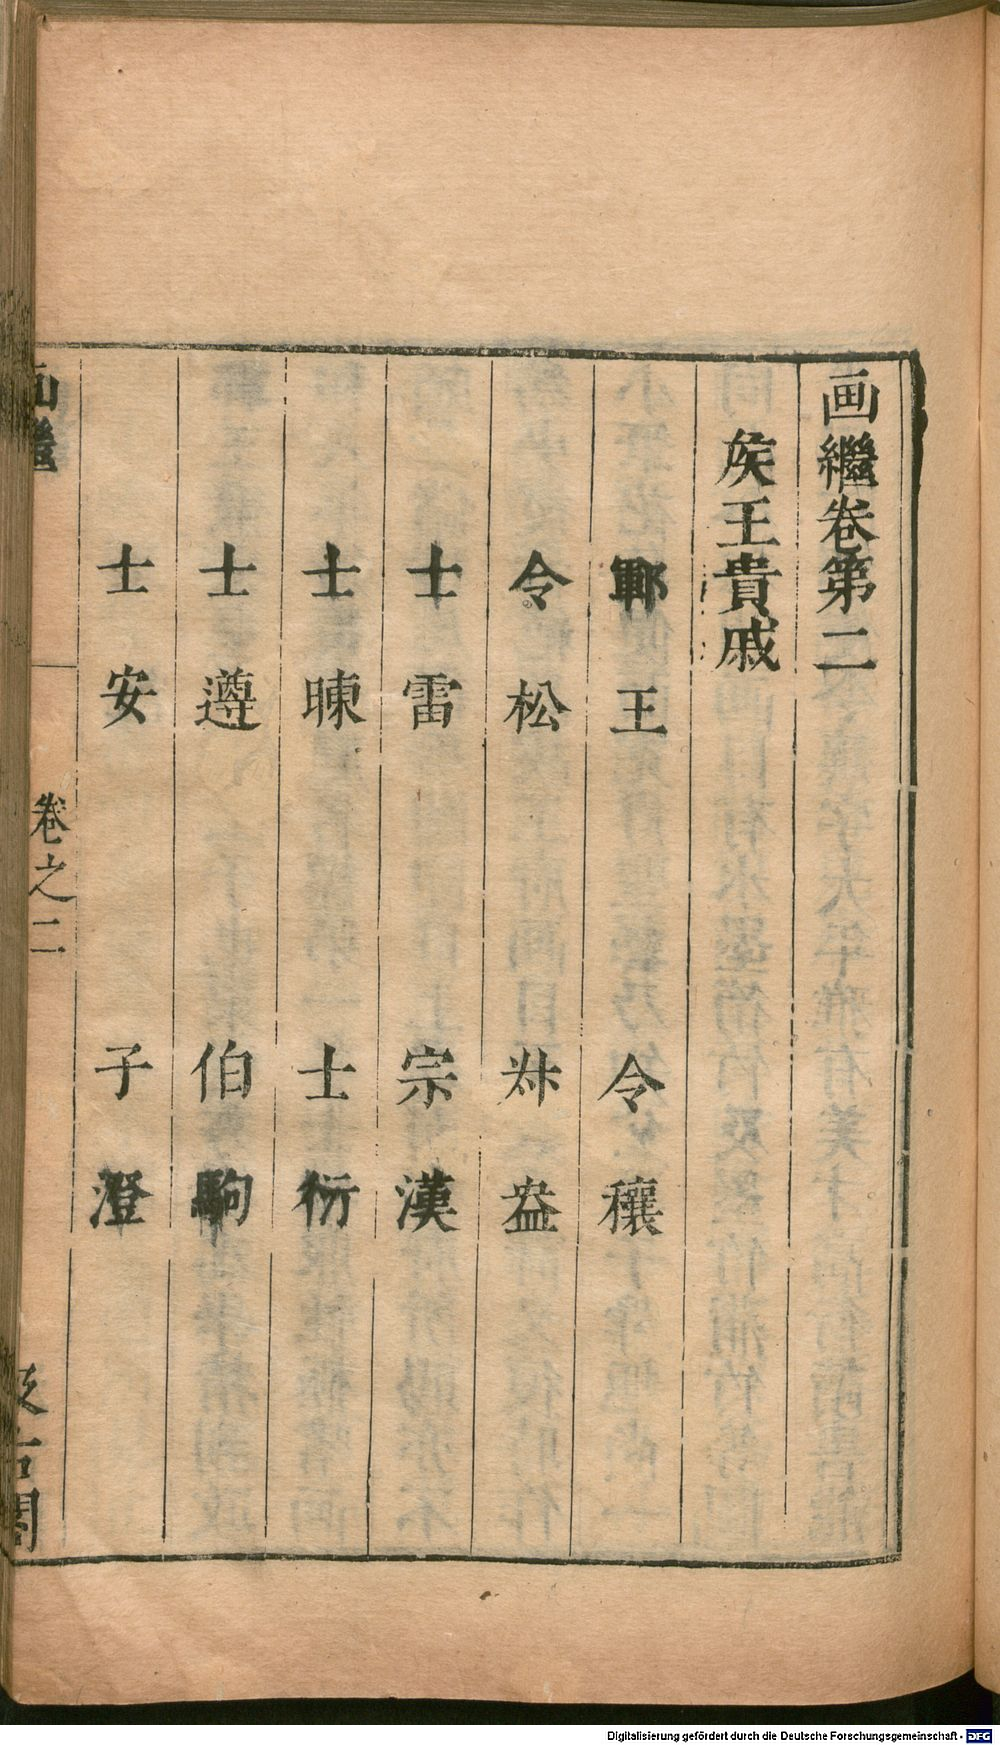 画繼卷第二
矦王貴戚
鄆王 令穰
令松 叔盎
士雷 宗漢
士暕 士衍
士遵 伯駒
士安 子澄
画繼 卷之二 汲古閣
Digitalisierung gefördert durch die Deutsche Forschungsgemeinschaft - DFG